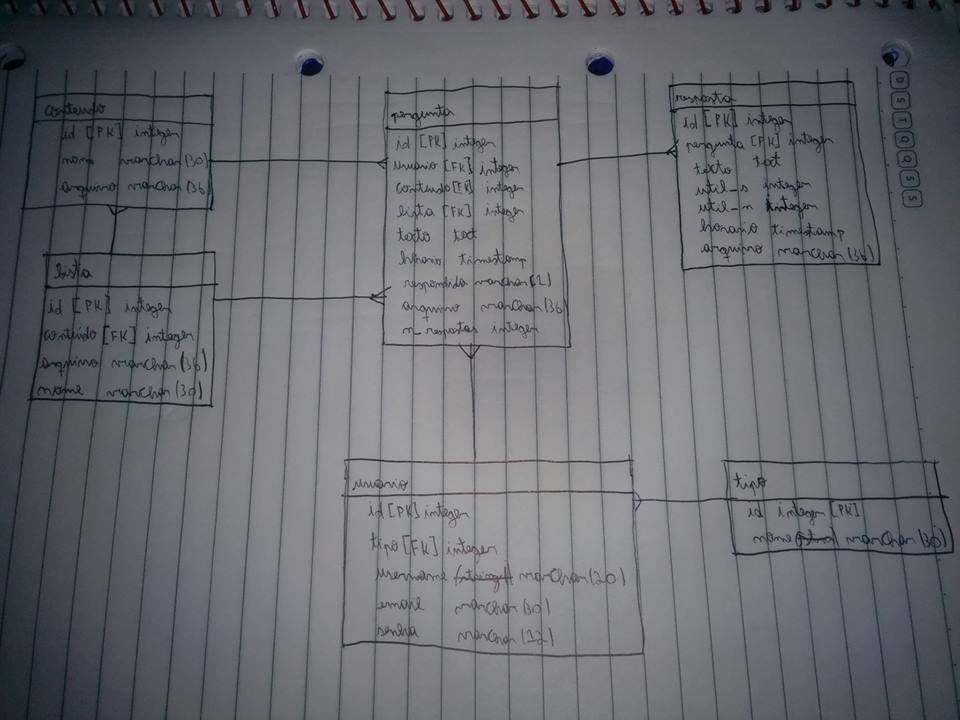 conteudo
id [PK] integer
nome varchar(30)
arquivo varchar(36)
lista
id [PK] integer
conteúdo [FK] integer
arquivo varchar(36)
nome varchar(30)
pergunta
id [PK] integer
usuário [FK] integer
conteudo [FK] integer
lista [FK] integer
texto text
horario timestamp
respondida varchar(1)
arquivo varchar(36
n_respostas integer
resposta
id [PK] integer
pergunta [FK] integer
texto text
util_s integer
util_n integer
horario timestamp
arquivo varchar(36)
usuário
id [PK] integer
tipo [FK] integer
username varchar(20)
email varchar(30)
senha varchar(12)
tipo
id integer [PK]
nome varchar(30)
D S T Q Q S S